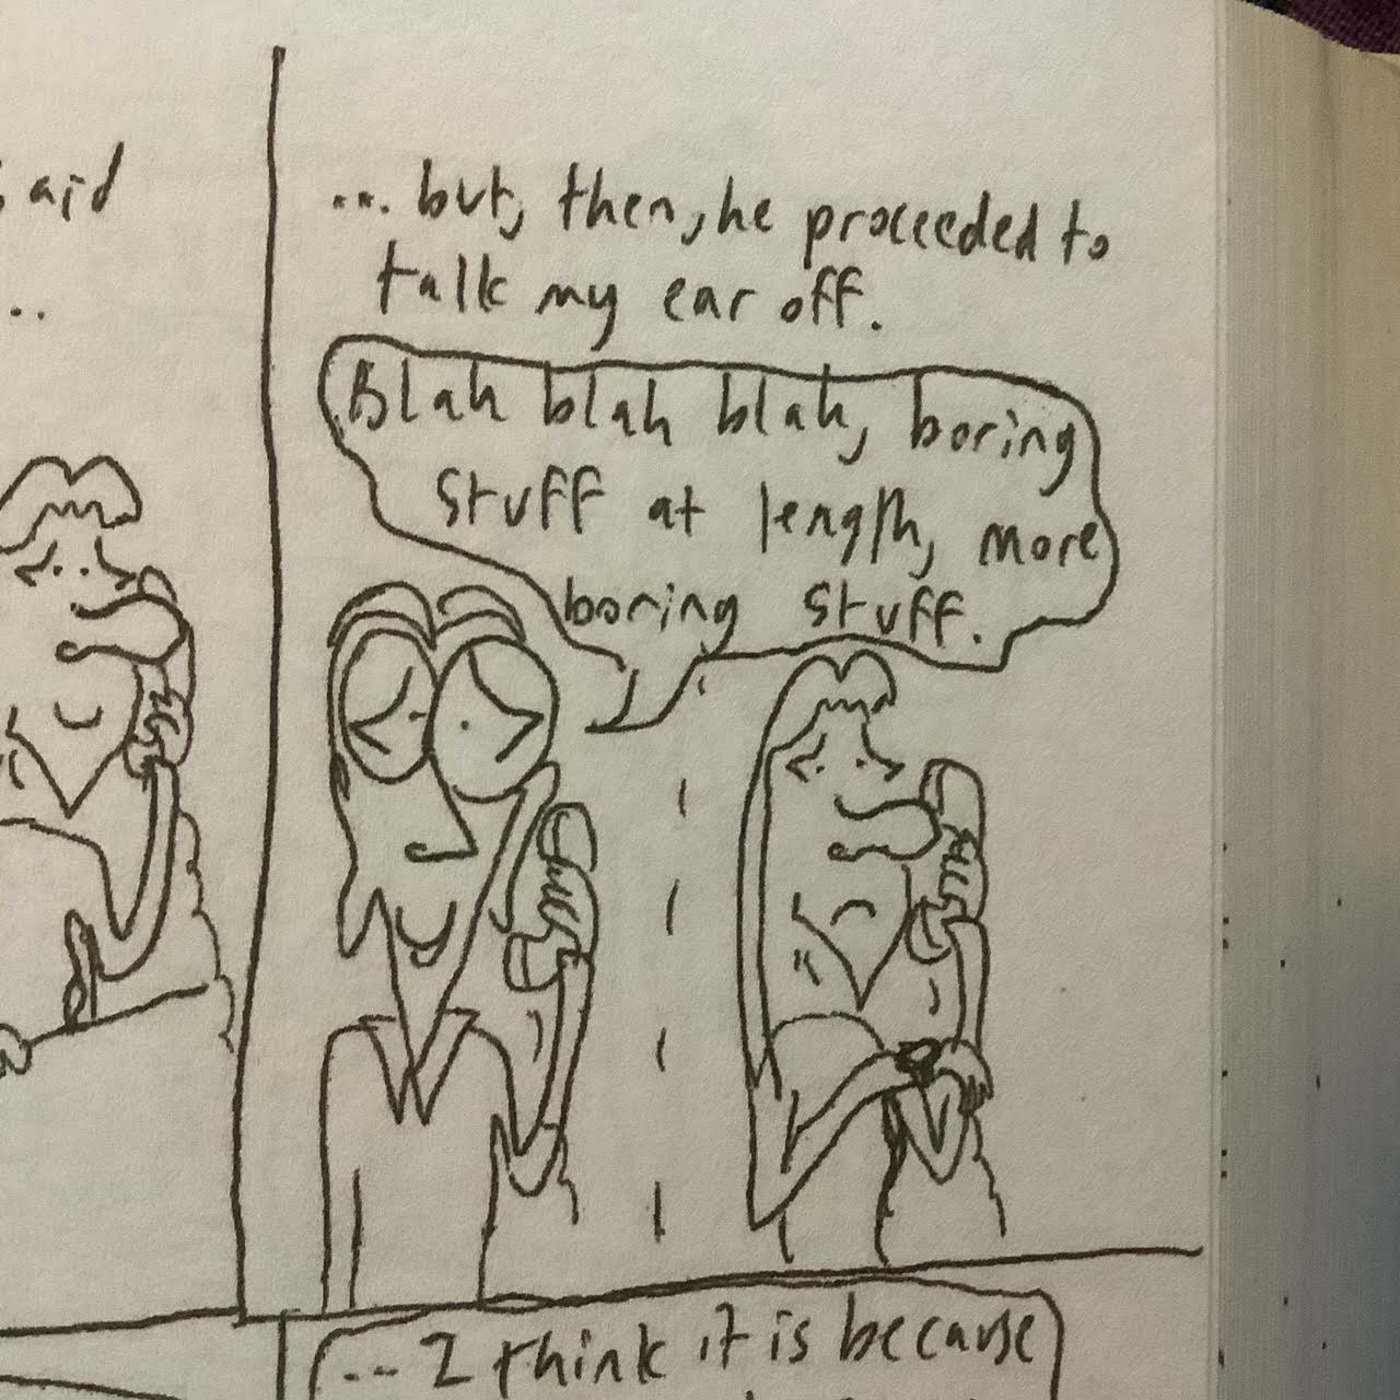 said
..
... but, then, he proceeded to
talk my ear off.
Blah blah blah, boring
stuff at length, more
boring stuff.
... I think it is because